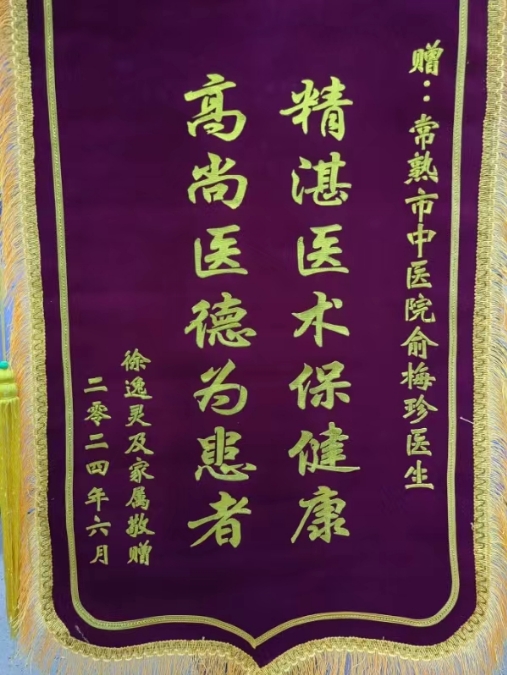 赠：常熟市中医院俞梅珍医生
精湛医术保健康
高尚医德为患者
徐逸灵及家属敬赠
二零二四年六月